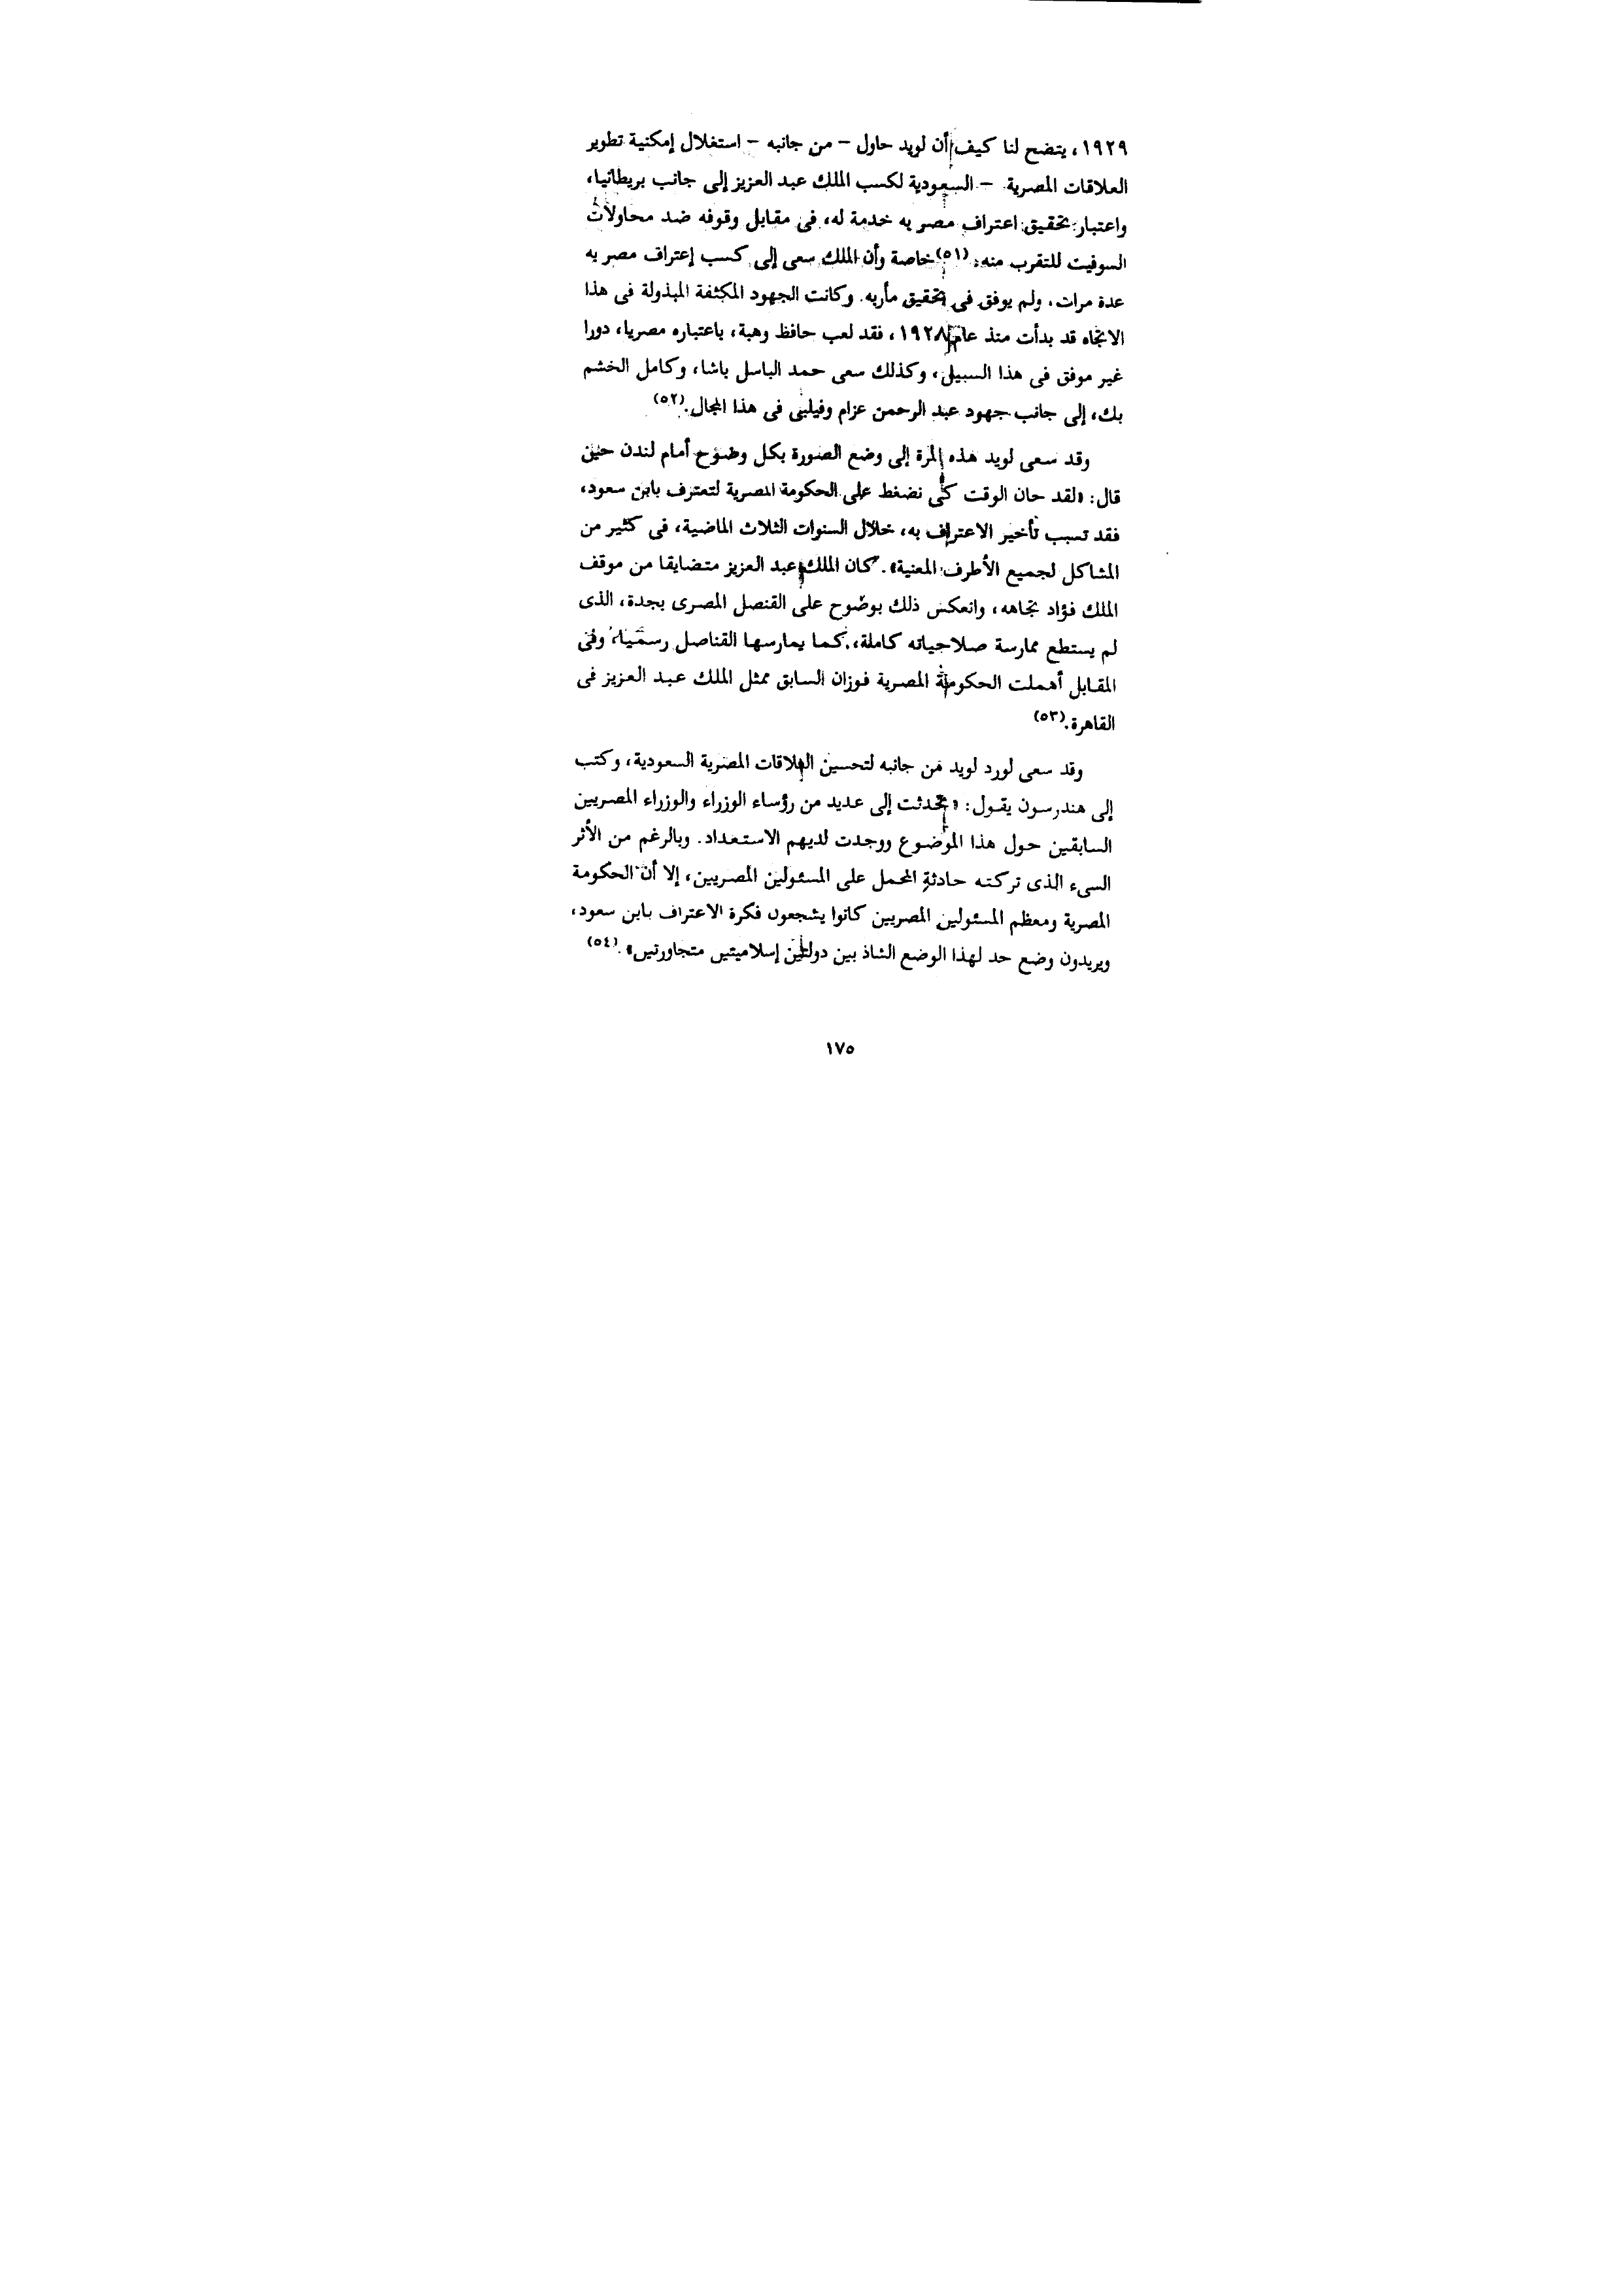 ١٩٢٩، يتضح لنا كيف أن لويد حاول – من جانبه – استغلال إمكنية تطوير
العلاقات المصرية – السعودية لكسب الملك عبد العزيز إلى جانب بريطانيا،
واعتبار تحقيق اعتراف مصر به خدمة له، فى مقابل وقوفه ضد محاولات
السوفيت للتقرب منه، (٥١) خاصة وأن الملك سعى إلى كسب إعتراف مصر به
عدة مرات، ولم يوفق فى تحقيق مأربه. وكانت الجهود المكثفة المبذولة فى هذا
الاتجاه قد بدأت منذ عام ١٩٢٨، فقد لعب حافظ وهبة، باعتباره مصريا، دورا
غير موفق فى هذا السبيل، وكذلك سعى حمد الباسل باشا، وكامل الخشم
بك، إلى جانب جهود عبد الرحمن عزام وفيلبى فى هذا المجال. (٥٢)
وقد سعى لويد هذه المرة إلى وضع الصورة بكل وضوح أمام لندن حين
قال: «لقد حان الوقت كى نضغط على الحكومة المصرية لتعترف بابن سعود،
فقد تسبب تأخير الاعتراف به، خلال السنوات الثلاث الماضية، فى كثير من
المشاكل لجميع الأطرف المعنية». كان الملك عبد العزيز متضايقا من موقف
الملك فؤاد تجاهه، وانعكس ذلك بوضوح على القنصل المصرى بجدة، الذى
لم يستطع ممارسة صلاحياته كاملة، كما يمارسها القناصل رسميا، وفى
المقابل أهملت الحكومة المصرية فوزان السابق ممثل الملك عبد العزيز فى
القاهرة. (٥٣)
وقد سعى لورد لويد من جانبه لتحسين العلاقات المصرية السعودية، وكتب
إلى هندرسون يقول: «تحدثت إلى عديد من رؤساء الوزراء والوزراء المصريين
السابقين حول هذا الموضوع ووجدت لديهم الاستعداد. وبالرغم من الأثر
السىء الذى تركته حادثة المحمل على المسئولين المصريين، إلا أن الحكومة
المصرية ومعظم المسئولين المصريين كانوا يشجعون فكرة الاعتراف بابن سعود،
ويريدون وضع حد لهذا الوضع الشاذ بين دولتين إسلاميتين متجاورتين». (٥٤)
١٧٥